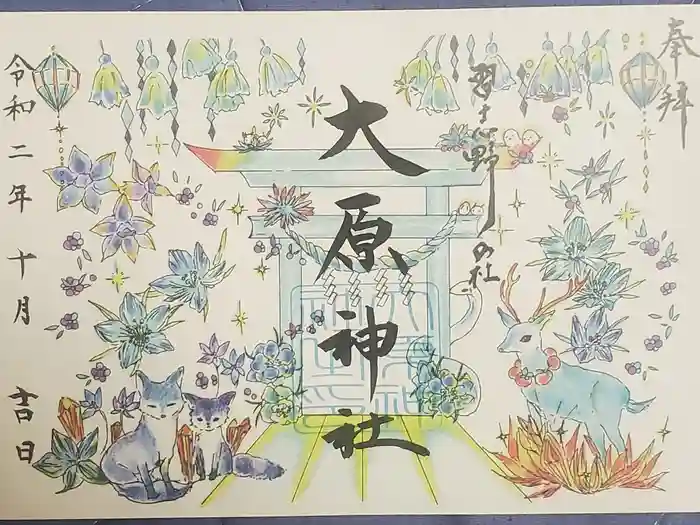 奉拝
習志野の社
大原神社
令和二年十月吉日